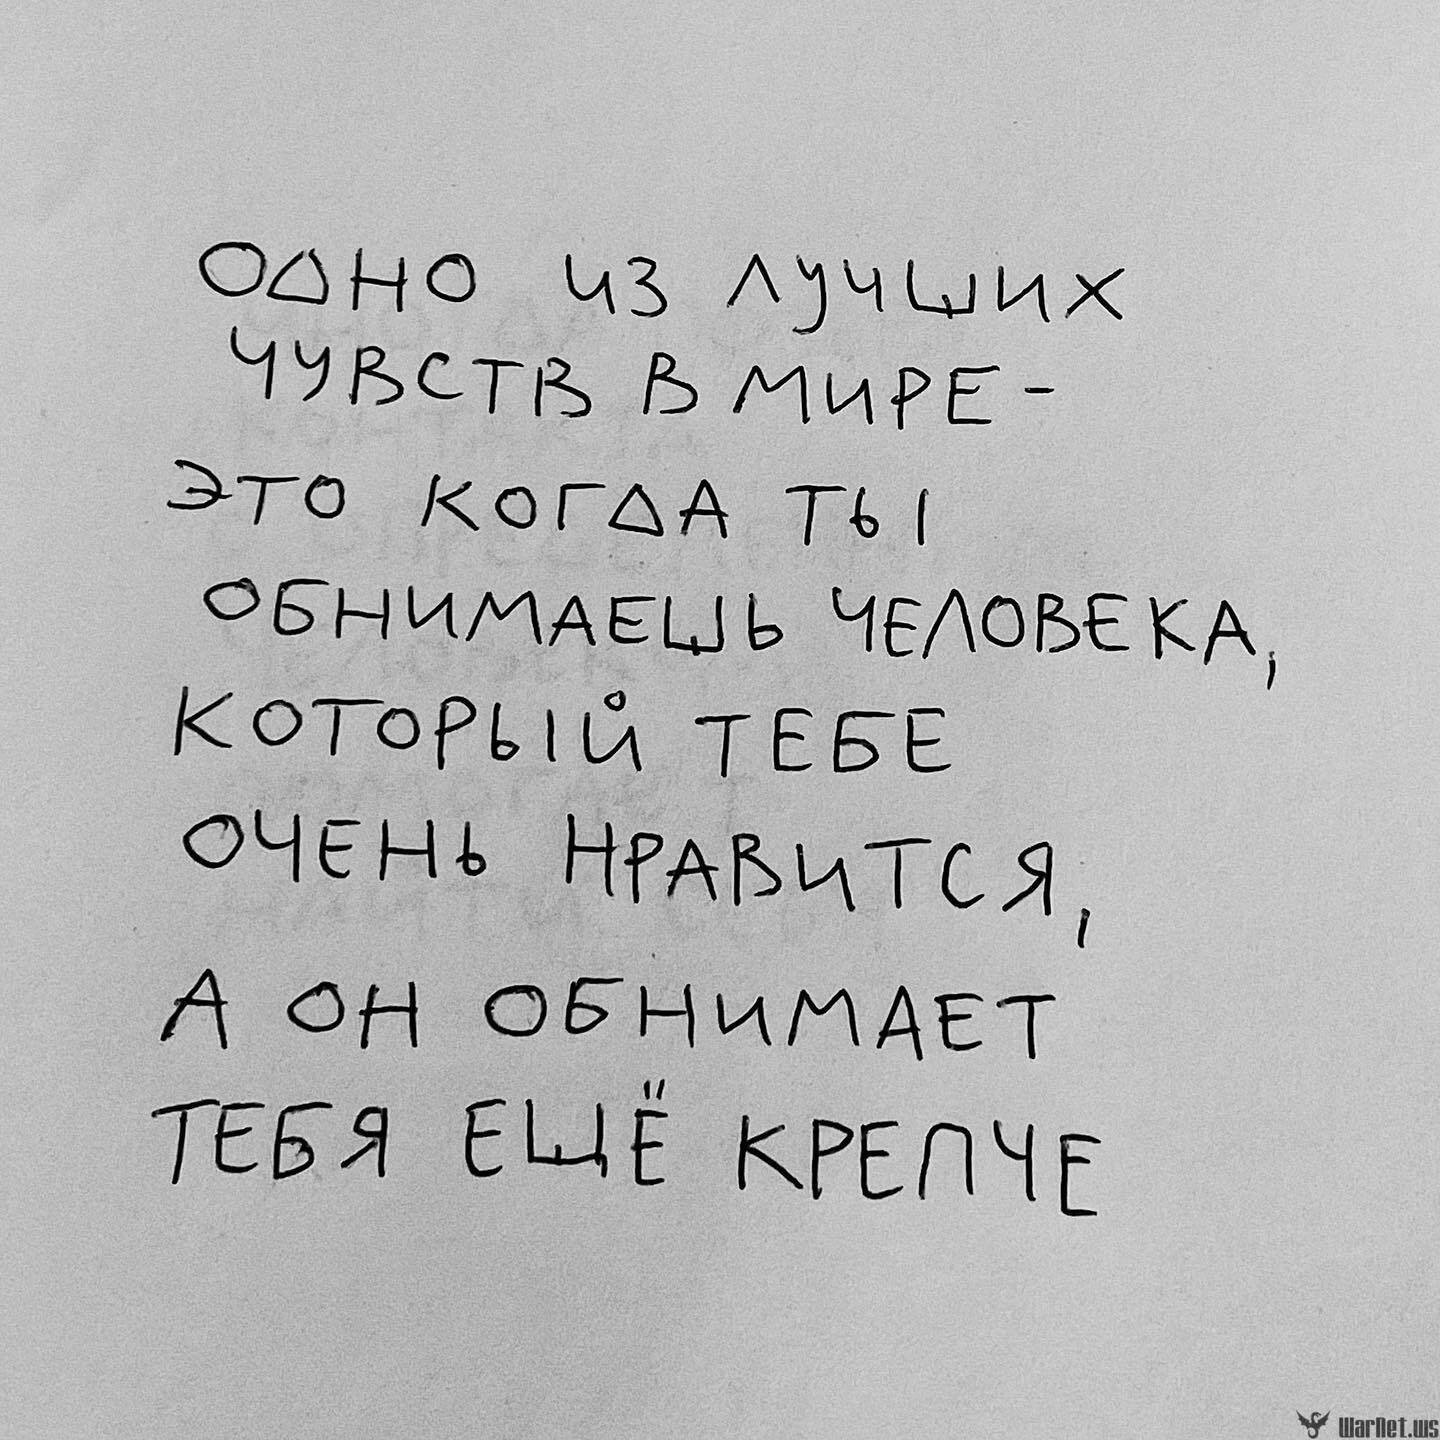 ОДНО ИЗ ЛУЧШИХ
ЧУВСТВ В МИРЕ -
ЭТО КОГДА ТЫ
ОБНИМАЕШЬ ЧЕЛОВЕКА,
КОТОРЫЙ ТЕБЕ
ОЧЕНЬ НРАВИТСЯ,
А ОН ОБНИМАЕТ
ТЕБЯ ЕЩЁ КРЕПЧЕ
WarNet.ws